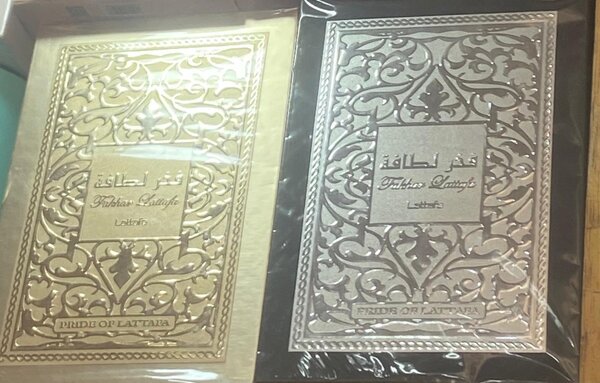 فخر لطافة
Fakhar Lattafa
Lattafa
PRIDE OF LATTAFA
فخر لطافة
Fakhar Lattafa
Lattafa
PRIDE OF LATTAFA